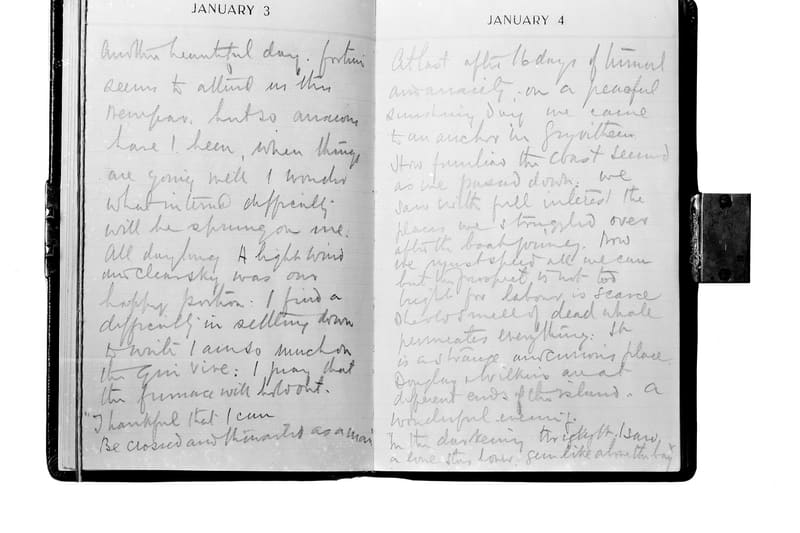 JANUARY 3
Another beautiful day. fortune
seems to attend us this
New Year. but so anxious
have I been, when things
are going well I wonder
what internal difficulty
will be sprung on me.
All day long A light wind
and clear sky was our
happy portion. I find a
difficulty in settling down
to write I am so much on
the qui vive: I pray that
the furnace will hold out.
"Thankful that I can
Be crossed and thwarted as a man
JANUARY 4
At last after 16 days of turmoil
and anxiety, on a peaceful
sunshiny day we came
to an anchor in Gryvitken
How familiar the coast seemed
as we passed down: we
saw with full interest the
places we struggled over
after the boat journey. Now
we must speed all we can
but the prospect is not too
bright for labour is scarce
The old smell of dead whale
permeates everything. It
is a strange and curious place.
Douglas & Wilkins are at
different ends of the island. A
wonderful evening.
In the darkening twilight I saw
a lone star hover. gem like above the bay